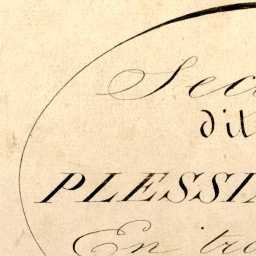 Sec
dit
PLESSI
En tro